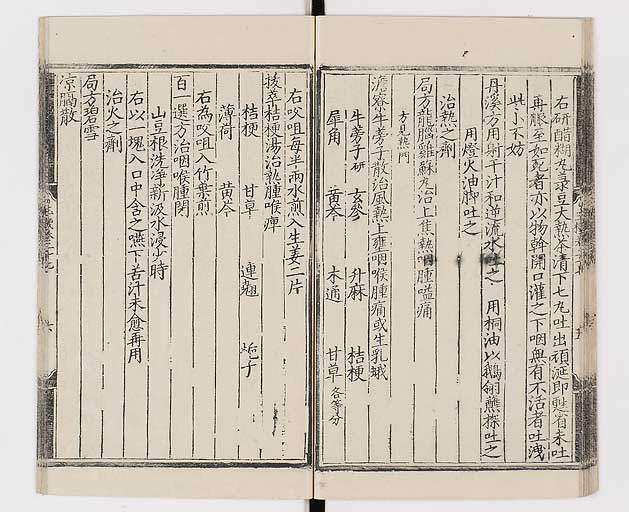 右研醋糊丸菉豆大熱茶清下七丸吐出頑涎即甦省未吐
再服至如死者亦以物斡開口灌之下咽無有不活者吐洩
些小不妨
丹溪方用射干汁和逆流水吐之 用桐油以鵝翎蘸探吐之
用燈火油脚吐之
治熱之劑
局方龍腦雞蘇丸治上焦熱咽腫嗌痛
方見熱門
澹寮牛蒡子散治風熱上壅咽喉腫痛或生乳蛾
牛蒡子研 玄參 升麻 桔梗
犀角 黃芩 木通 甘草各等分
右㕮咀每半兩水煎入生姜二片
拔萃桔梗湯治熱腫喉痺
桔梗 甘草 連翹 梔子
薄荷 黃芩
右為㕮咀入竹葉煎
百一選方治咽喉腫閉
山豆根洗淨新汲水浸少時
右以一塊入口中含之嚥下苦汁未愈再用
治火之劑
局方碧雪
凉膈散
六
五